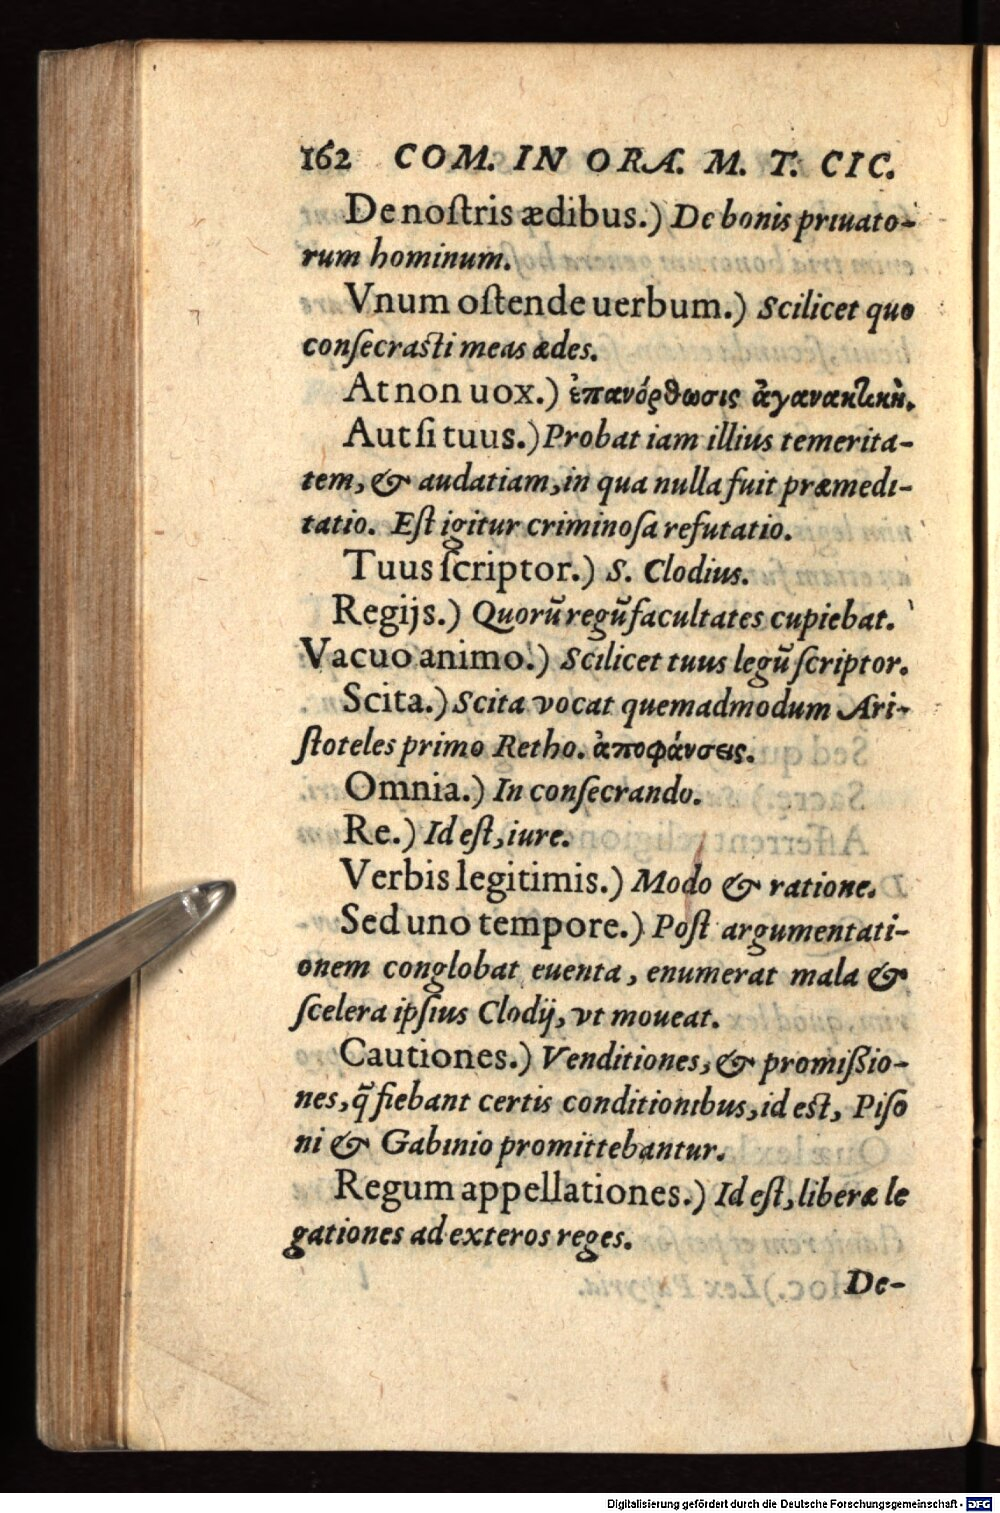 162 COM. IN ORA. M. T. CIC.
De nostris ædibus.) De bonis priuato-
rum hominum.
Vnum ostende uerbum.) Scilicet quo
consecrasti meas ædes.
At non uox.) ἐπανόρθωσις ἀγανακτικὴ.
Aut si tuus.) Probat iam illius temerita-
tem, & audatiam, in qua nulla fuit præmedi-
tatio. Est igitur criminosa refutatio.
Tuus scriptor.) S. Clodius.
Regijs.) Quorũ regũ facultates cupiebat.
Vacuo animo.) Scilicet tuus legũ scriptor.
Scita.) Scita vocat quemadmodum Ari-
stoteles primo Retho. ἀποφάνσεις.
Omnia.) In consecrando.
Re.) Id est, iure.
Verbis legitimis.) Modo & ratione.
Sed uno tempore.) Post argumentati-
onem conglobat euenta, enumerat mala &
scelera ipsius Clodij, vt moueat.
Cautiones.) Venditiones, & promißio-
nes, q̃ fiebant certis conditionibus, id est, Piso
ni & Gabinio promittebantur.
Regum appellationes.) Id est, liberæ le
gationes ad exteros reges.
De-
Digitalisierung gefördert durch die Deutsche Forschungsgemeinschaft - DFG